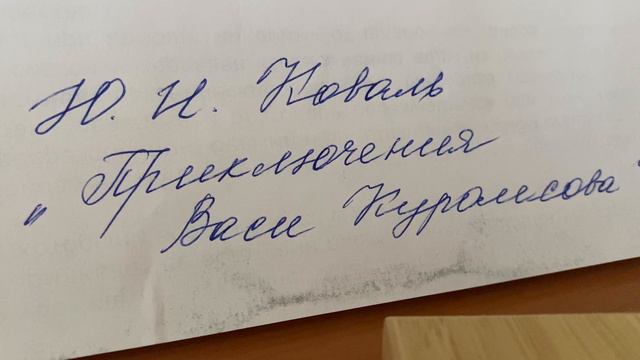 Ю. И. Коваль
„Приключения
Васи Куролесова"